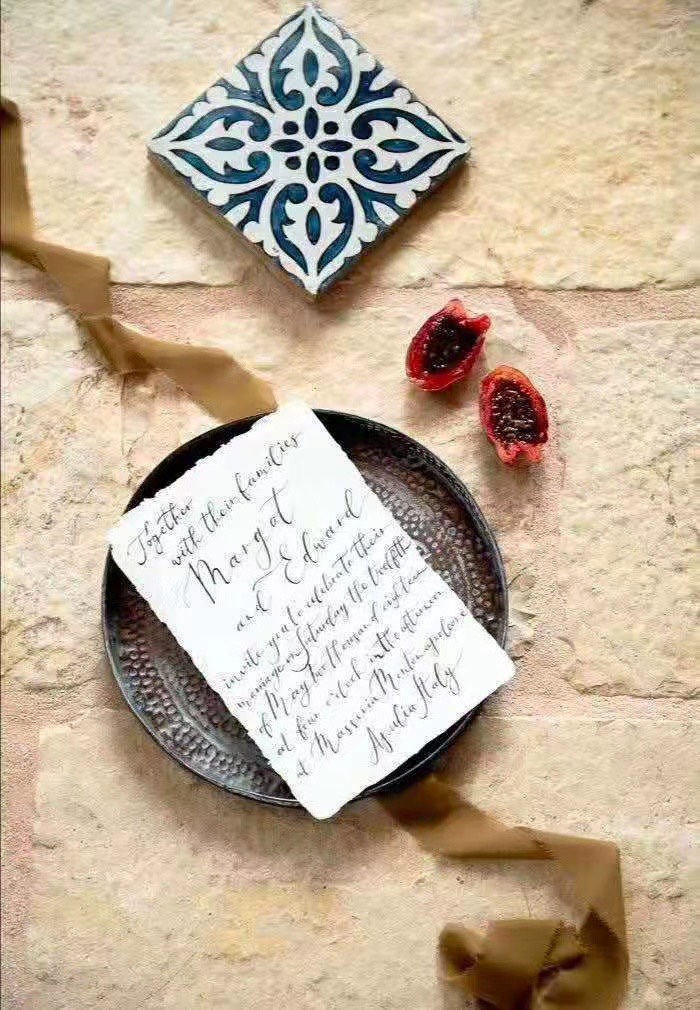 Together
with their families
Margot
and Edward
invite you to celebrate their
marriage on Saturday the twelfth
of May two thousand eighteen
at four o'clock in the afternoon
at Masseria Montenapoleone
Apulia Italy